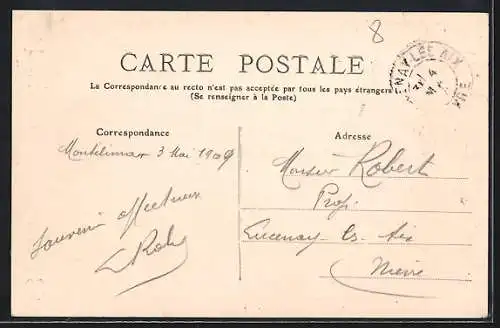 8
CARTE POSTALE
La Correspondance au recto n'est pas acceptée par tous les pays étrangers
(Se renseigner à la Poste)
Correspondance
Adresse
Montélimar 3 Mai 1909
Monsieur Robert
Prof.
Lucenay-les-Aix
Nièvre
Souvenir affectueux